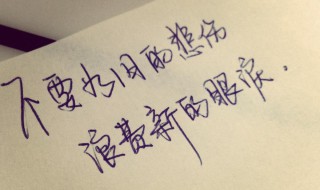 不要为旧的悲伤
浪费新的眼淚.